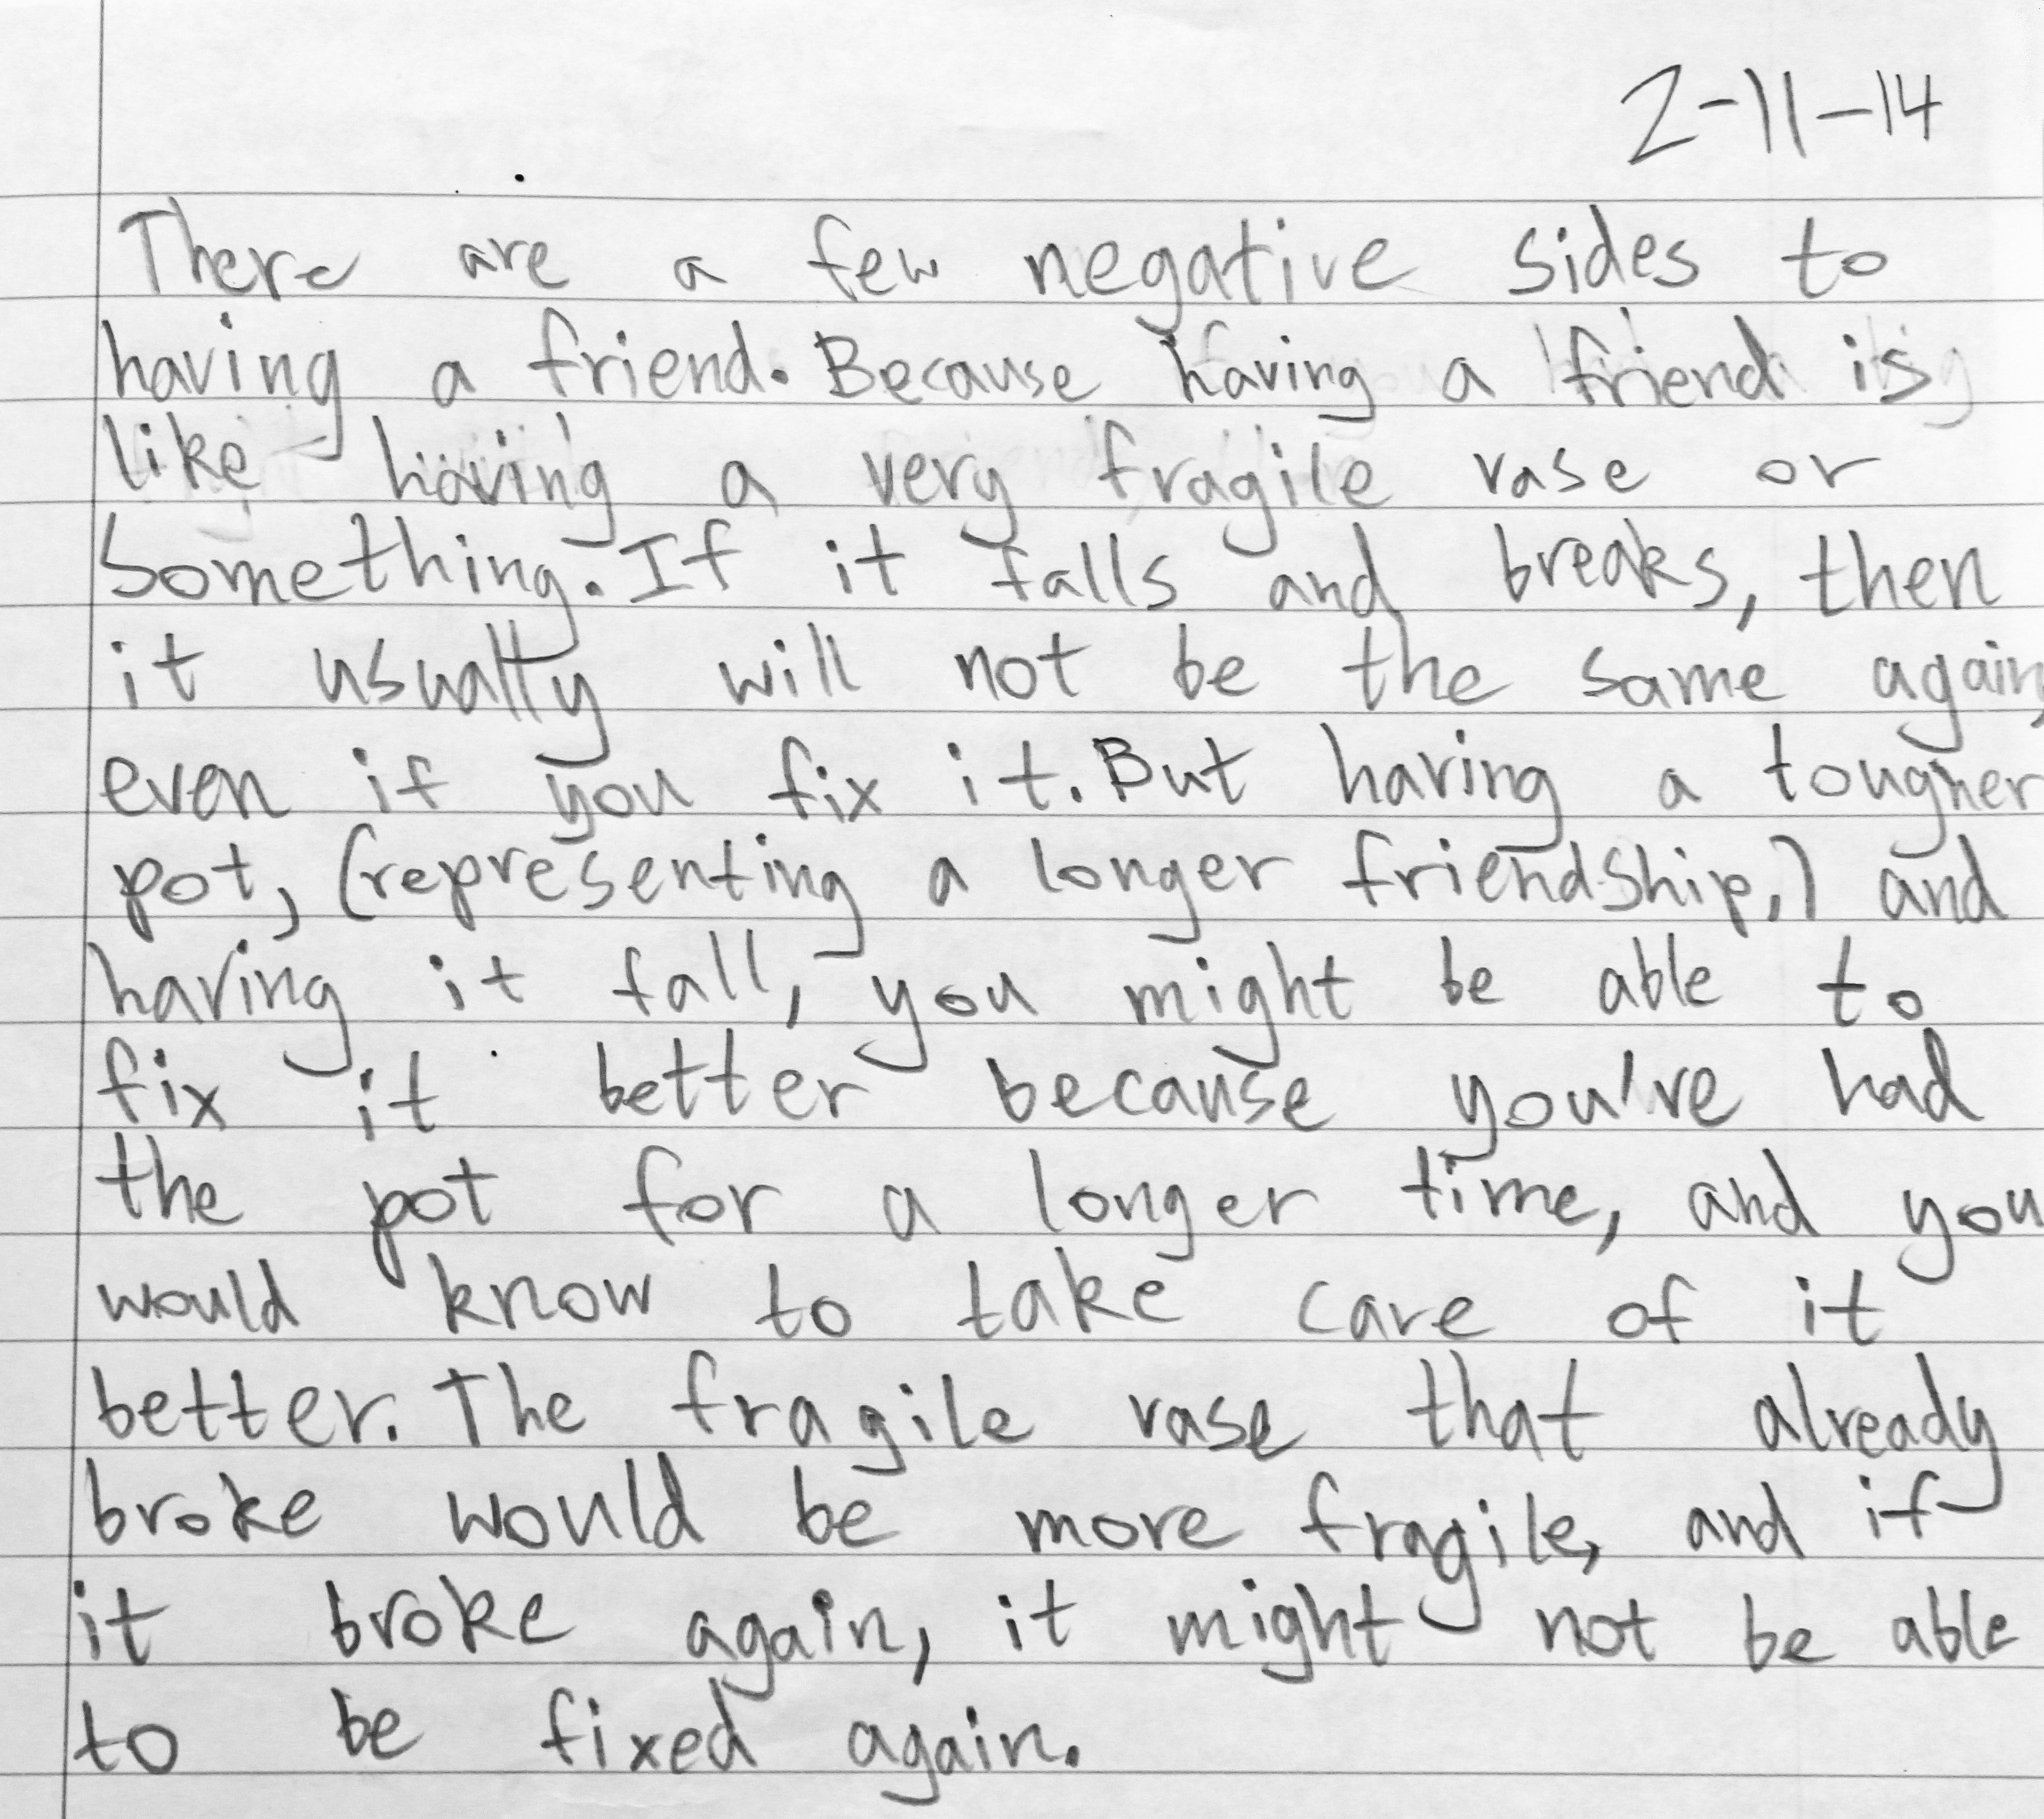 2-11-14
There are a few negative sides to
having a friend. Because having a friend is
like having a very fragile vase or
something. If it falls and breaks, then
it usually will not be the same again,
even if you fix it. But having a tougher
pot, (representing a longer friendship,) and
having it fall, you might be able to
fix it better because you've had
the pot for a longer time, and you
would know to take care of it
better. The fragile vase that already
broke would be more fragile, and if
it broke again, it might not be able
to be fixed again.